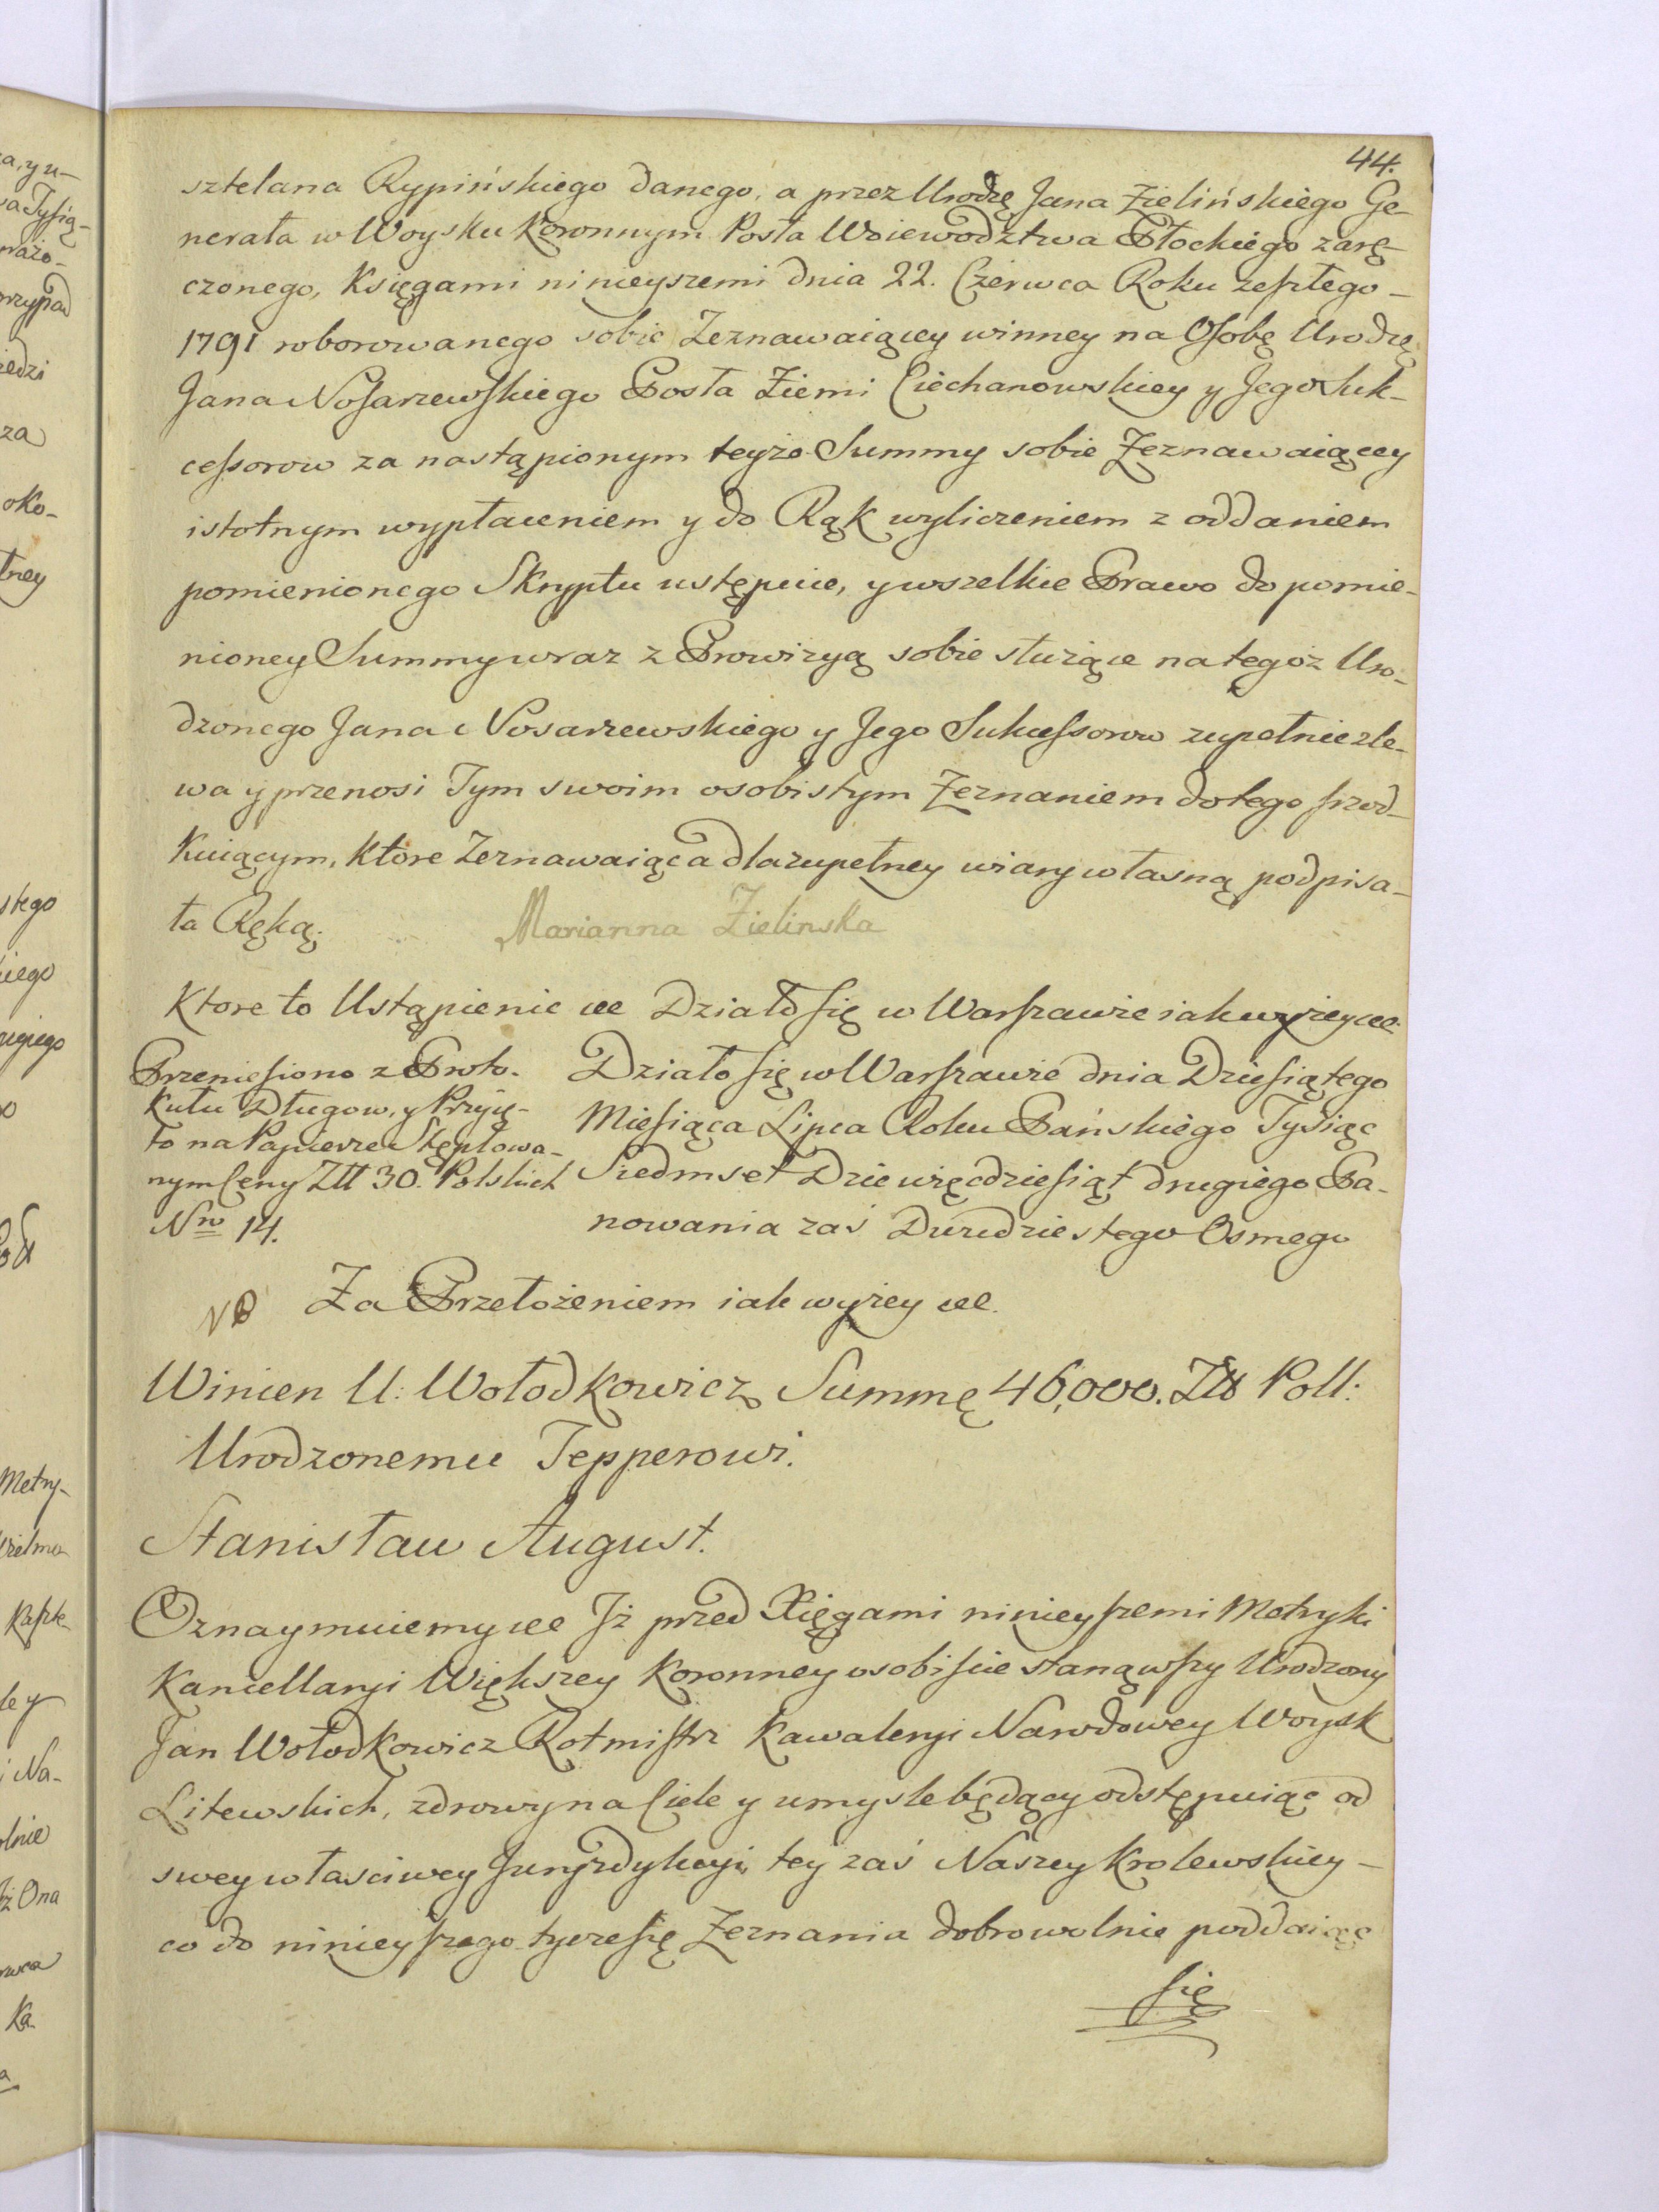 44.
sztelana Rypińskiego danego, a przez Urodzę Jana Zielińskiego Ge-
nerała w Woysku Koronnym Posła Woiewodztwa Płockiego zarę-
czonego, Księgami ninieyszemi dnia 22. Czerwca Roku zeszłego -
1791 roborowanego sobie Zeznawaiącey winney na Osobę Urodzę
Jana Nosarzewskiego Posła Ziemi Ciechanowskiey y Jego Suk-
cessorow za nastąpionym teyże Summy sobie Zeznawaiącey
istotnym wypłaceniem y do Rąk wyliczeniem z oddaniem
pomienionego Skryptu ustępuie, y wszelkie Prawo do pomie-
nioney Summy wraz z Prowizyą sobie służące na tegoż Uro-
dzonego Jana Nosarzewskiego y Jego Sukcessorow zupełnie zle-
wa y przenosi Tym swoim osobistym Zeznaniem do tego szrod-
kuiącym, ktore Zeznawaiąca dla zupełney wiary własną podpisa-
ła Ręką;
Marianna Zielinska
Ktore to Ustąpienie ee Działo się w Warszawie iak wyżey ee.
Przeniesiono z Proto-
kułu Długow, y Przyię-
to na Papierze Stęplowa-
nym Ceny Złł 30. Polskich
Nro 14.
Działo się w Warszawie dnia Dziesiątego
Miesiąca Lipca Roku Pańskiego Tysiąc
Siedmset Dziewięćdziesiąt drugiego Pa-
nowania zaś Dwudziestego Osmego
NB Za Przełożeniem iak wyżey ee.
Winien U: Wołodkowicz Summę 46,000. Zło Poll:
Urodzonemu Tepperowi.
Stanisław August.
Oznaymuiemy ee Iż przed Xięgami ninieyszemi Metryki
Kancellaryi Większey Koronney osobiscie stanąwszy Urodzony
Jan Wołodkowicz Rotmistrz Kawaleryi Narodowey Woysk
Litewskich, zdrowy na Ciele y umysle będący odstępuiąc od
swey własciwey Juryzdykcyi, tey zaś Naszey Krolewskiey -
co do ninieyszego tycze się Zeznania dobrowolnie poddaiąc
się